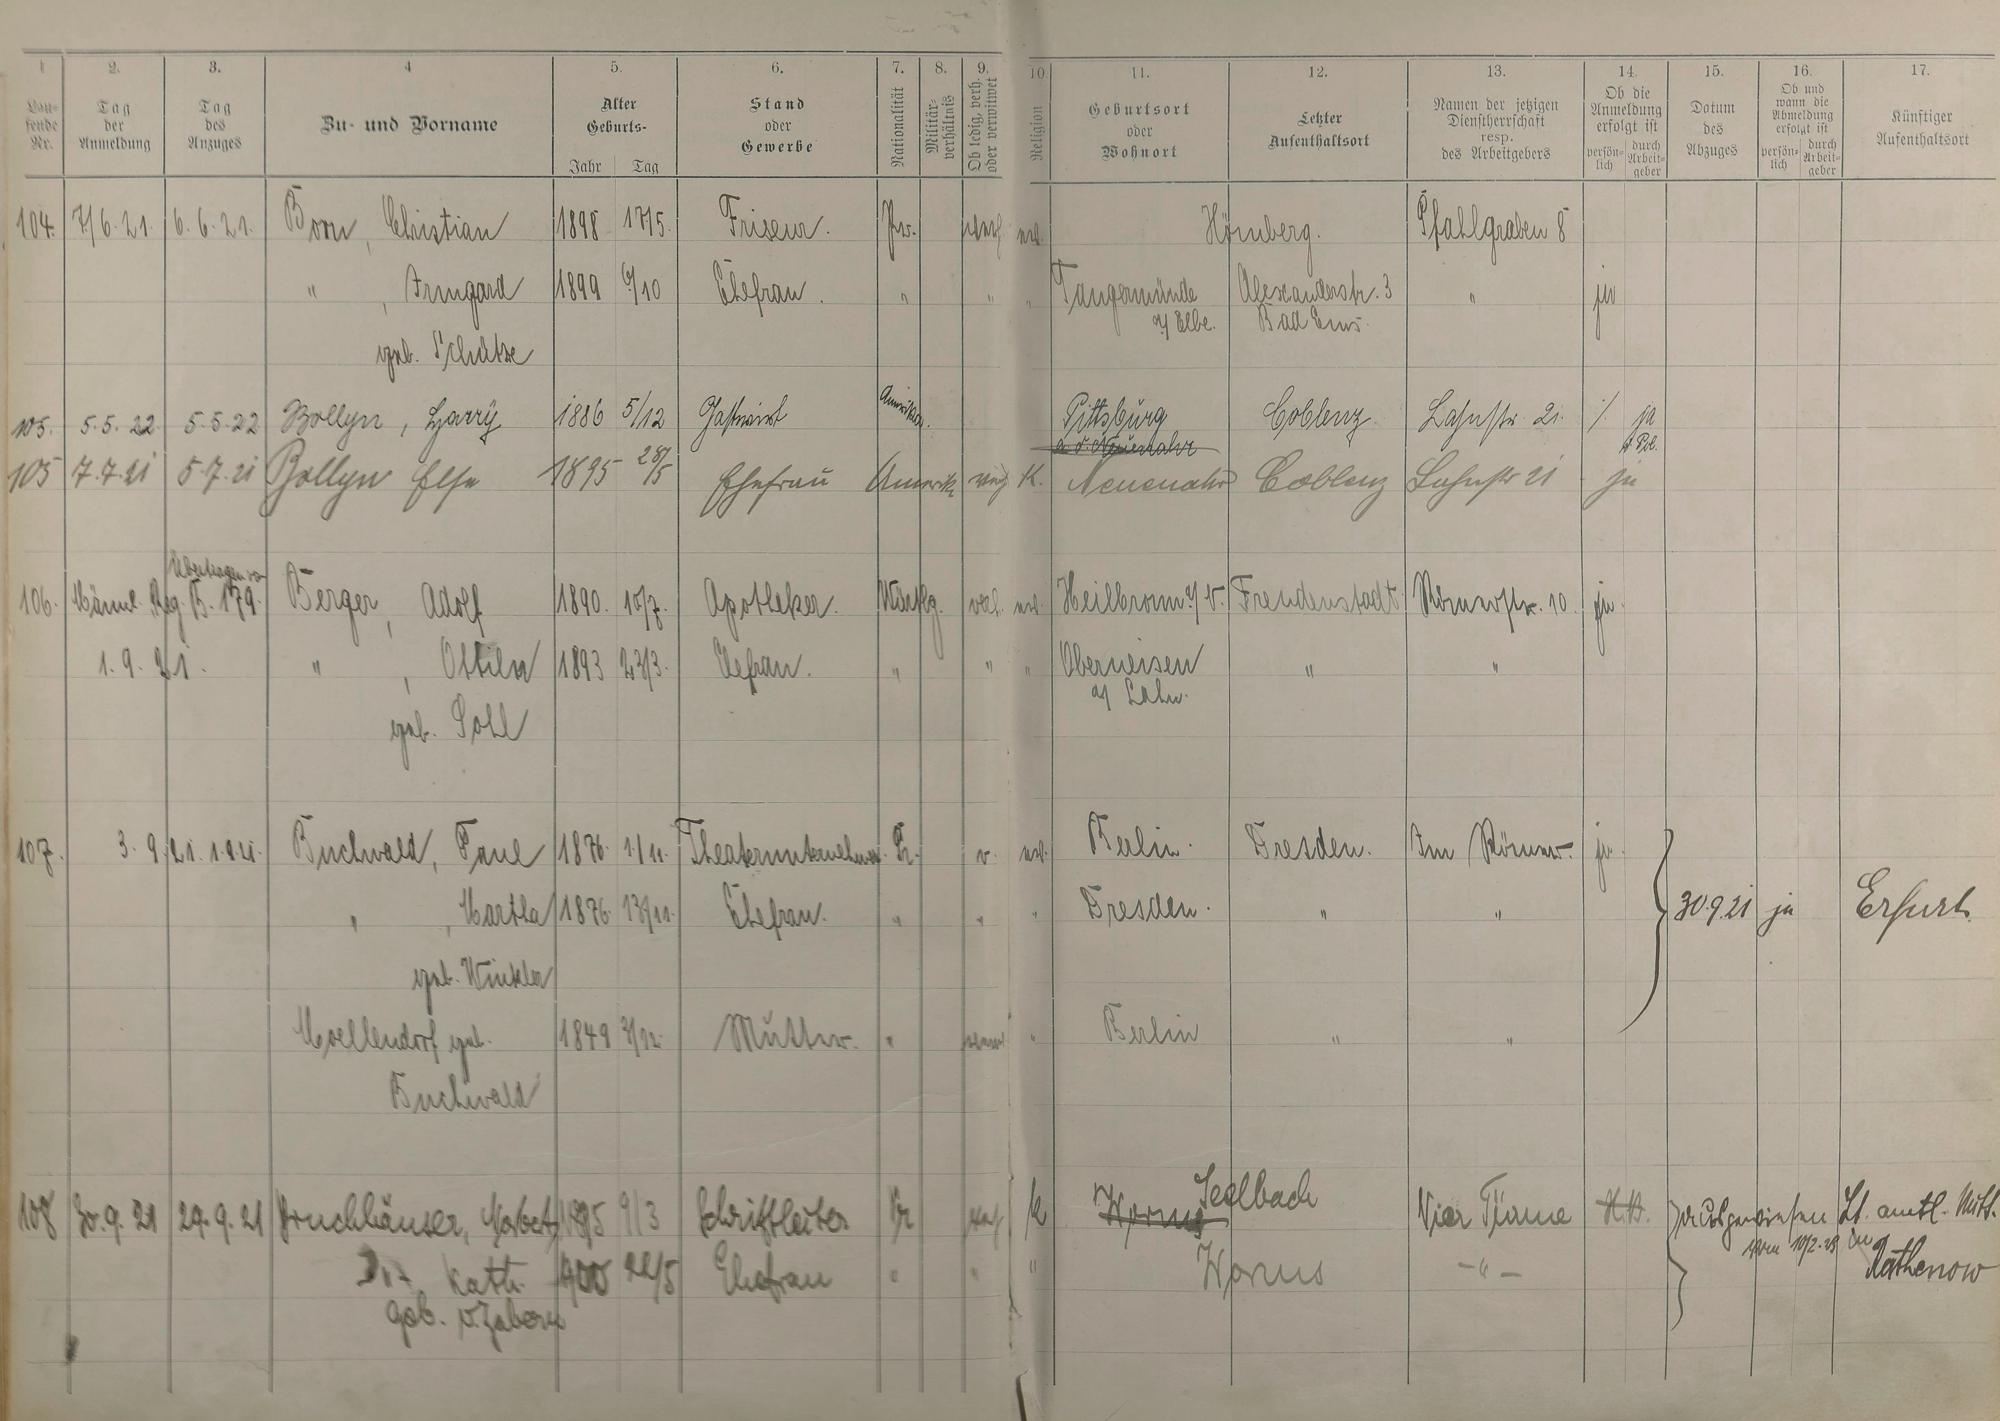 1 2. 3. 4 5. 6. 7. 8. 9. 10. 11. 12. 13. 14. 15. 16. 17.
Lau-
fende
Nr.
Tag
der
Anmeldung
Tag
des
Anzuges
Zu- und Vorname
Alter
Geburts-
Jahr Tag
Stand
oder
Gewerbe
Nationalität
Militär-
verhältnis
Ob ledig, verh.
oder verwitwet
Religion
Geburtsort
oder
Wohnort
Letzter
Aufenthaltsort
Namen der jetzigen
Dienstherrschaft
resp.
des Arbeitgebers
Ob die
Anmeldung
erfolgt ist
persön-
lich
durch
Arbeit-
geber
Datum
des
Abzuges
Ob und
wann die
Abmeldung
erfolgt ist
persön-
lich
durch
Arbeit-
geber
Künftiger
Aufenthaltsort
104. 7/6.21. 6.6.21. Born, Christian 1898 17/5. Friseur. Pr. verh. ev. Hömberg. Pfahlgraben 8
" , Irmgard 1899 6/10 Ehefrau. " " " Tangermünde Alexanderstr. 3 " ja
a/ Elbe. Bad Ems.
geb. Schütze
105. 5.5.22 5.5.22 Bollyn, Harry 1886 5/12 Gastwirt Amerikan. Pittsburg Coblenz Lahnstr. 21. /. ja
a. d. Neuenahr
105 7.7.21 5.7.21 Bollyn Else 1895 28/5 Ehefrau Amerik. verh K. Neuenahr Coblenz Lahnstr 21 - ja
Übertragen von
106. Männl. Reg. B. 179. Berger, Adolf 1890. 10/7. Apotheker. Württbg. verh. ev. Heilbronn a/ Freudenstadt Römerstr. 10. ja
1.9.21. " , Ottilie 1893 23/3. Ehefrau. " " " Oberneisen " "
a/ Lahn.
geb. Pohl
107. 3.9.21. 1.9.21. Buchwald, Paul 1876. 1./11. Theaterunternehmer. Pr. v. ev. Berlin. Dresden. Im Römer. ja.
" , Martha 1876. 13/11. Ehefrau. " " " Dresden. " " 30.9.21 ja Erfurt.
geb. Winkler
Moellendorf geb. 1849 Mutter. " " Berlin " "
Buchwald
108 30.9.21 29.9.21 Bruchhäuser, Norbert 1895 9/3 Schriftleiter Pr verh K Worms Seelbach Vier Türme Ausgewiesen Lt. amtl. Mitt.
vom 10/2.23 in
Rathenow
Kath. 1900 22/5 Ehefrau " " " Worms - " -
geb. v. Zabern